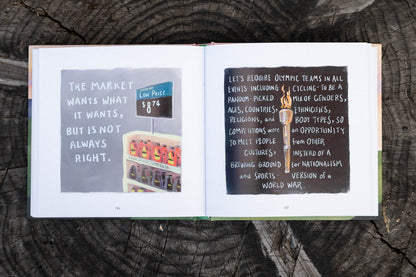 THE MARKET
WANTS WHAT
IT WANTS,
BUT IS NOT
ALWAYS
RIGHT.
LOW PRICE
$8.74
LET'S REQUIRE OLYMPIC TEAMS IN ALL
EVENTS - INCLUDING CYCLING - TO BE A
RANDOM-PICKED MIX OF GENDERS,
AGES, COUNTRIES, ETHNICITIES,
RELIGIONS, and BODY TYPES, SO
COMPETITIONS were AN OPPORTUNITY
TO MEET PEOPLE from OTHER
CULTURES, INSTEAD OF A
BREWING GROUND for NATIONALISM
and SPORTS- VERSION of a
WORLD WAR.